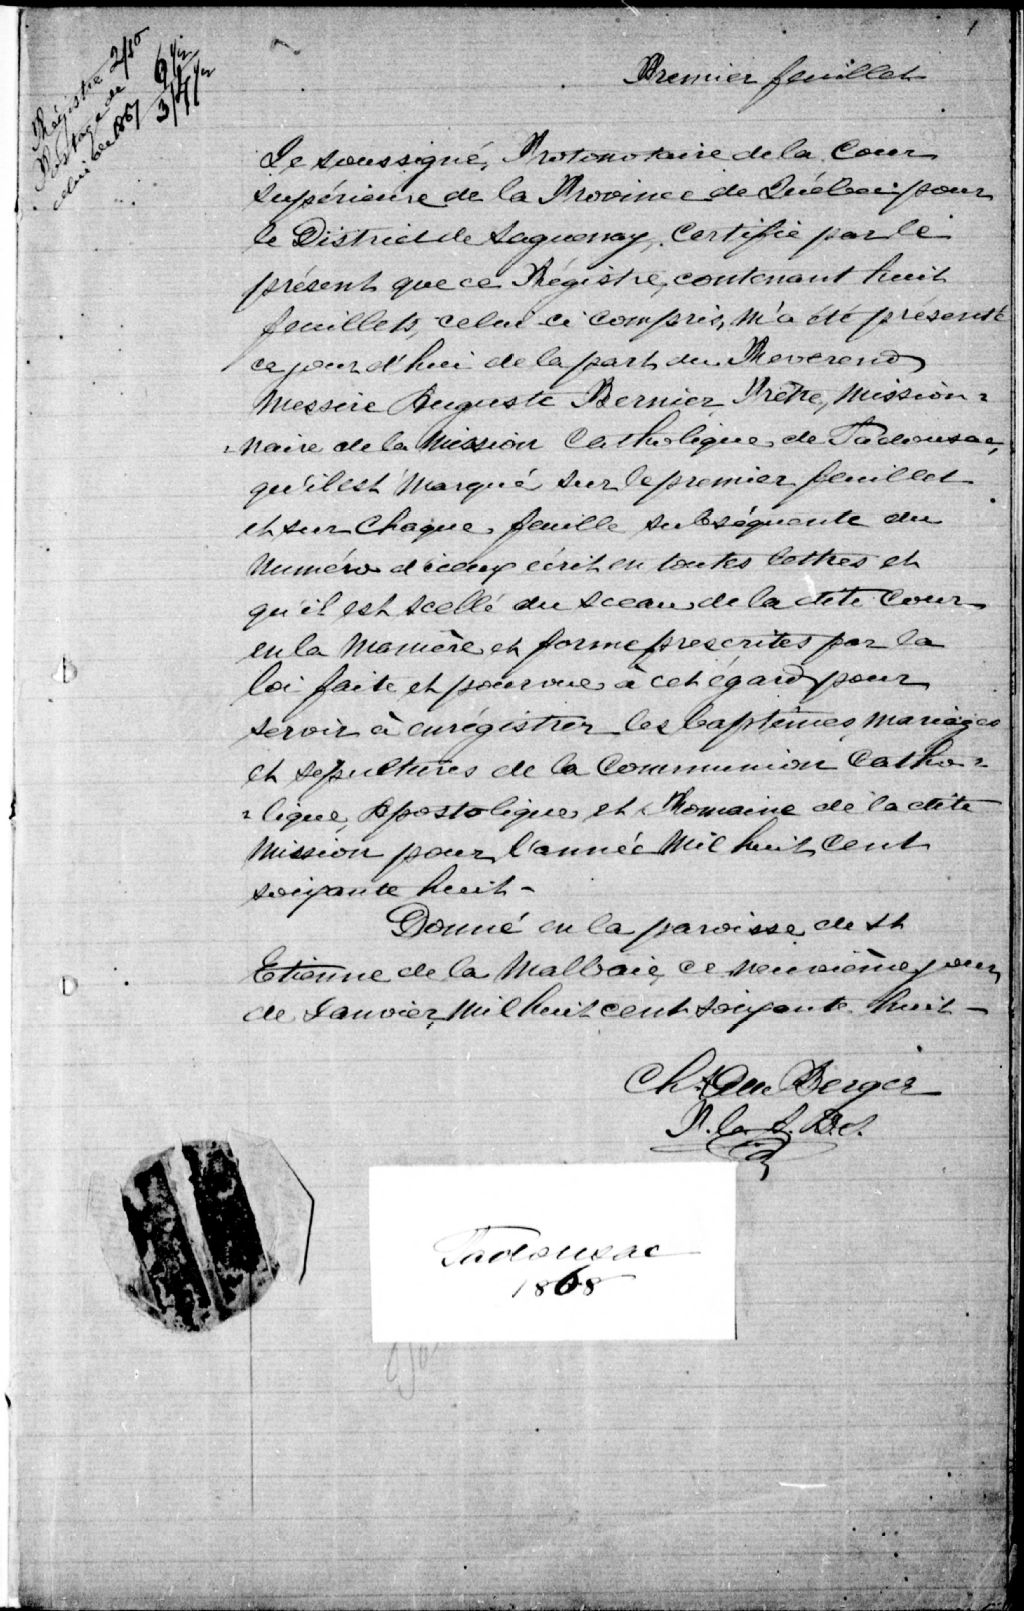 1
Régistre 2/10
Postage de
celui de 1867
3/4
Premier feuillet
Le soussigné, Protonotaire de la Cour
Supérieure de la Province de Québec pour
le District de Saguenay, Certifie par le
présent que ce Régistre, contenant huit
feuillets, celui-ci compris, m'a été présenté
ce jourd'hui de la part du Reverend
Messire Auguste Bernier Prêtre, Mission=
=naire de la Mission Catholique de Tadousac,
qu'il est Marqué sur le premier feuillet
et sur Chaque feuille subséquente du
Numéro d'iceux écrit en toutes lettres et
qu'il est scellé du sceau de la dite Cour
en la Manière et forme prescrites par la
loi faite et pourvue à cet égard pour
servir à enrégistrer les baptêmes, Mariages
et sepultures de la Communion Catho=
=lique, Apostolique, et Romaine de la dite
Mission pour l'année Mil huit Cent
soixante huit -
Donné en la paroisse de St
Etienne de la Malbaie, ce neuvième jour
de Janvier, Mil huit cent soixante huit -
Chs Du Berger
P. C. S. D. S.
Tadousac
1868